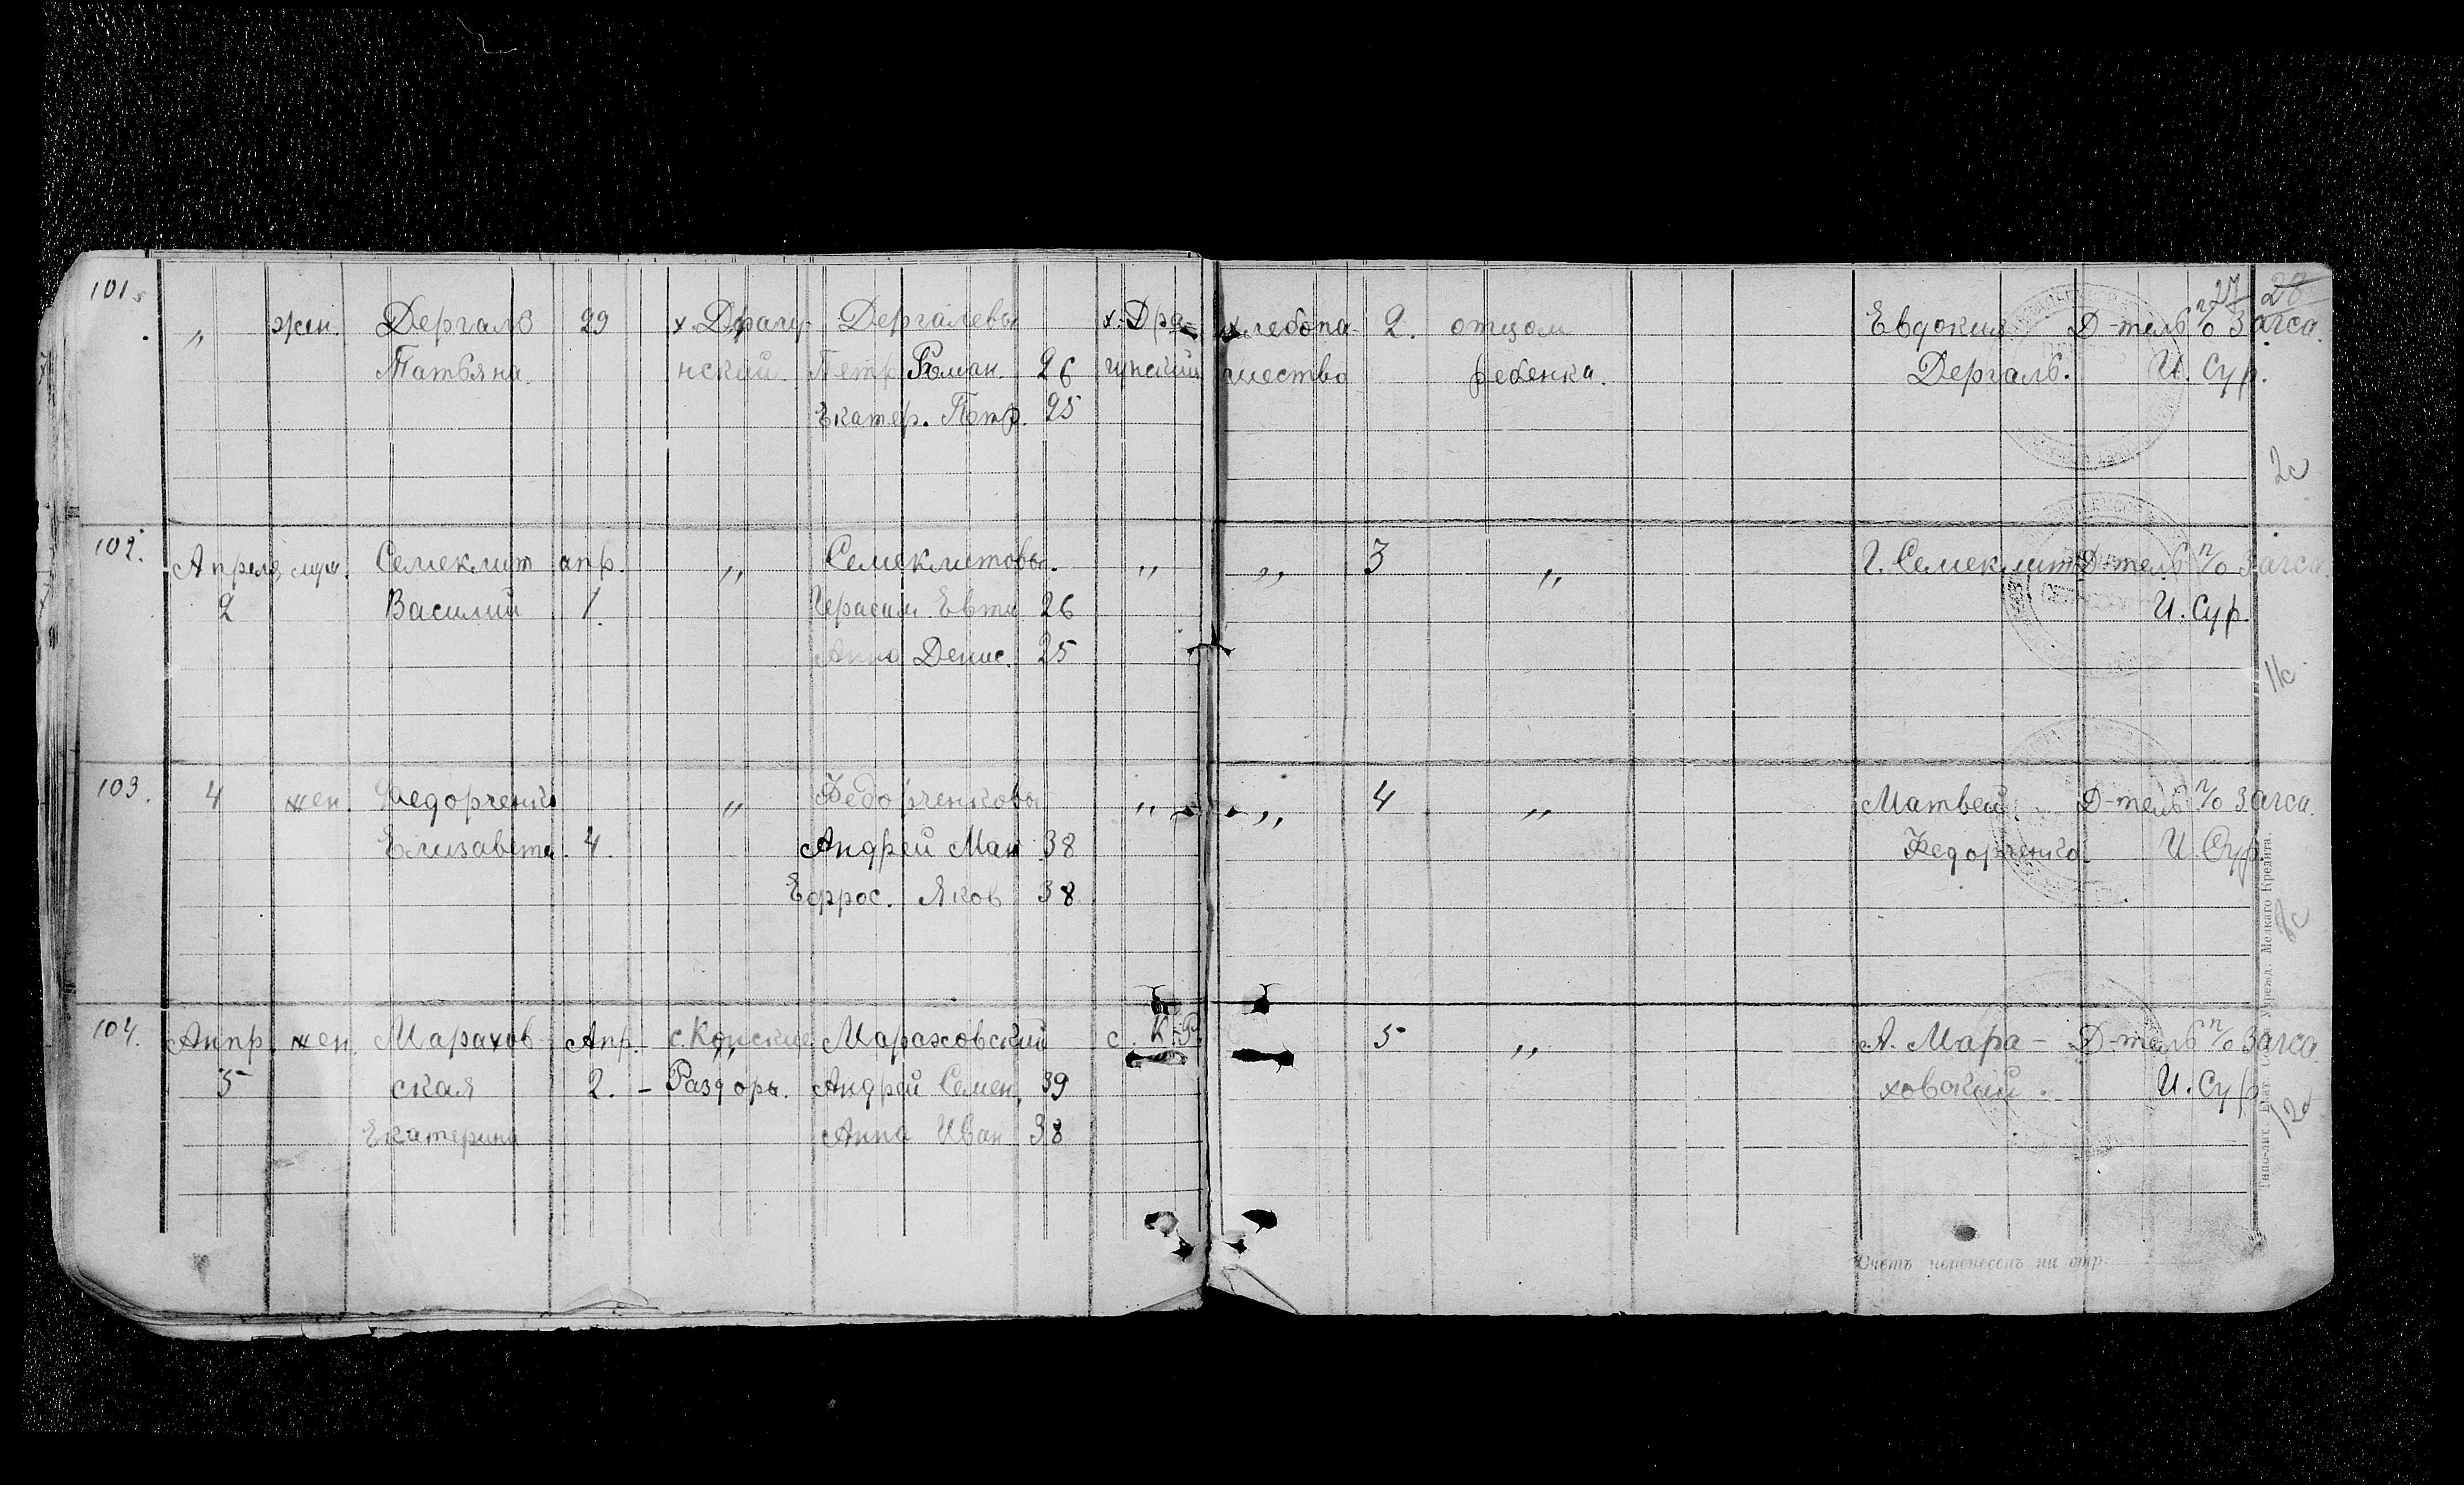 27 28
101. „ жен. Дергаль 29 х. Драгу- Дергалевы х. Дра- хлебопа- 2. отцом Евдокия Д-тель п/о Загса.
Татьяна. нский. Петр Роман. 26 гунский шество ребенка. Дергаль. И. Сур.
Екатер. Петр. 25
2с
102. Апреля муж. Семеклит апр. „ Семеклитовы. „ „ 3 „ Г. Семеклит Д-тель п/о Загса.
2 Василий 1. Герасим Евти 26 И. Сур.
Анна Денис. 25
11с
103. 4 жен. Федорченко „ Федорченковы „ „ 4 „ Матвей Д-тель п/о Загса.
Елизавета 4. Андрей Мак 38 Федорченко. И. Сур.
Ефрос. Яков 38
8с
104. Аппр. жен. Марахов- Апр. с. Конские Мараховский с. К-Р. 5 „ А. Мара- Д-тель п/о Загса.
5 ская 2. - Раздоры. Андрей Семен. 39 ховский. И. Сур
Екатерина Анна Иван 38
12с
Счетъ перенесенъ на стр.
Мелкаго Кредита.